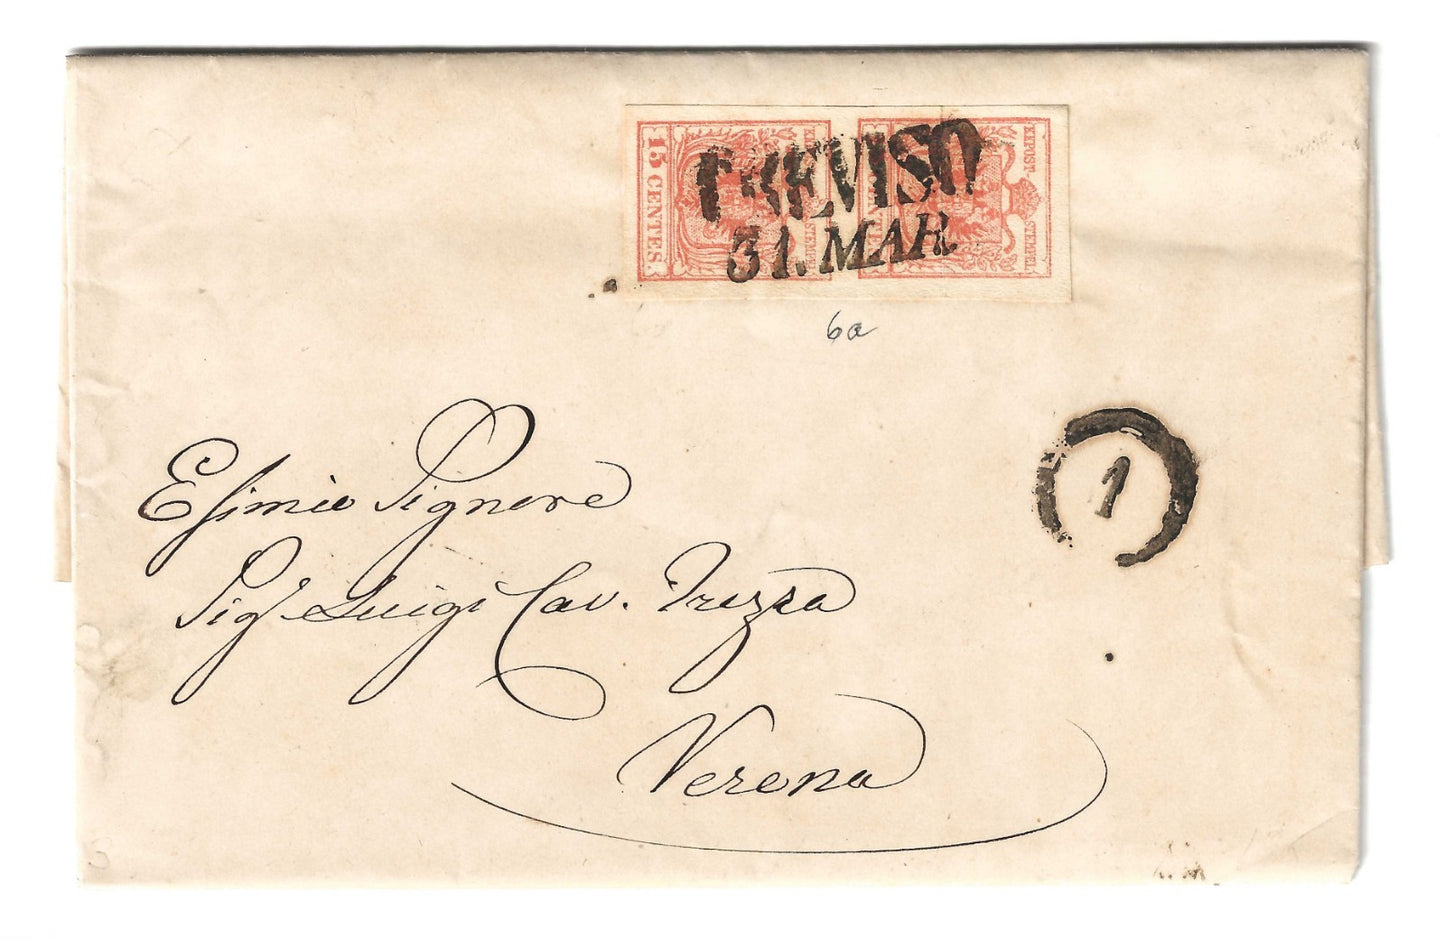 15 CENTES.
KKPOST-STEMPEL
TREVISO
31. MAR.
6a
1
Esimio Signore
Sigr Luigi Cav. Trezza
Verona